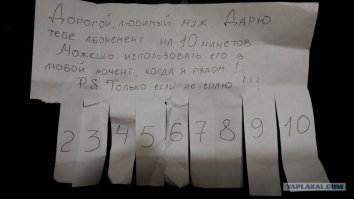 Дорогой, любимый муж Дарю
тебе абонемент на 10 минетов
Можешь использовать его в
любой момент, когда я рядом!
P.S. Только если не сплю !!!
2 3 4 5 6 7 8 9 10
YAPLAKAL.COM